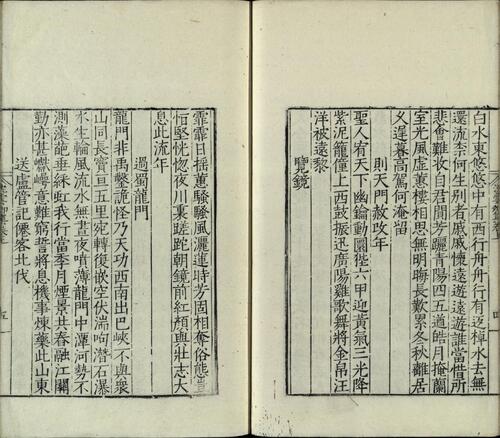 白水東悠悠中有西行舟舟行有返棹水去無
還流奈何生別者戚戚懷遠遊遠遊誰當惜所
悲會難收自君間芳躧青陽四五遒皓月掩蘭
室光風虛蕙樓相思無明晦長歎累冬秋離居
又遲暮高駕何淹留
則天門赦改年
聖人宥天下幽鑰動圜狴六甲迎黃氣三光降
紫泥籠僮上西鼓振迅廣陽雞歌舞將金帛汪
洋被遠黎
覽鏡
四
五
霏霏日搖蕙騷騷風灑蓮時芳固相奪俗態豈
恒堅恍惚夜川裏蹉跎朝鏡前紅顏與壯志太
息此流年
過蜀龍門
龍門非禹鑿詭怪乃天功西南出巴峽不與衆
山同長竇亘五里宛轉復嵌空伏湍喣潛石瀑
水生輪風流水無晝夜噴薄龍門中潭河勢不
測藻葩垂綵虹我行當季月煙景共春融江關
勤亦甚巘崿意難窮誓將息機事煉藥此山東
送盧管記僊客北伐